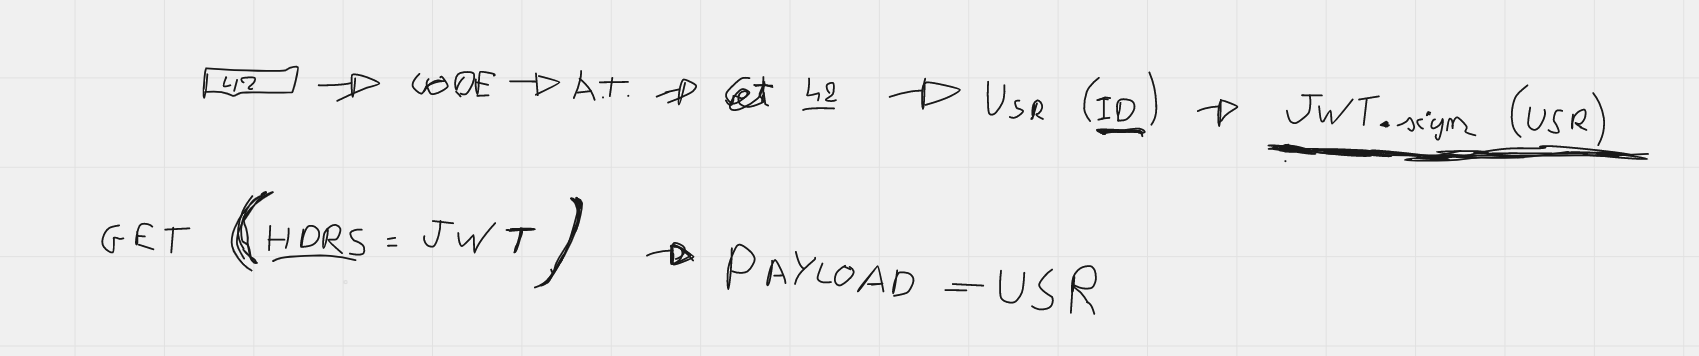 42 → CODE → A.T. → Get 42 → USR (ID) → JWT.sign (USR)
GET (HDRS = JWT) → PAYLOAD = USR